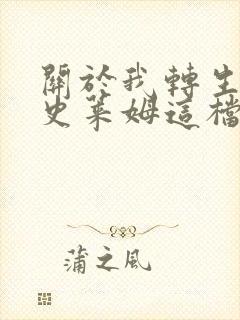 關於我轉生
史萊姆這檔
蒲之風